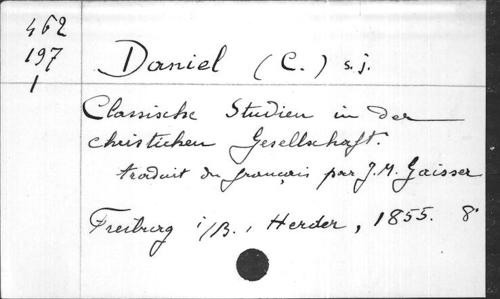 462
197
1
Daniel (C.) s.j.
Classische Studien in der
christichen Gesellschaft.
traduit du français par J.M. Gaisser
Freiburg i/B., Herder, 1855. 8°